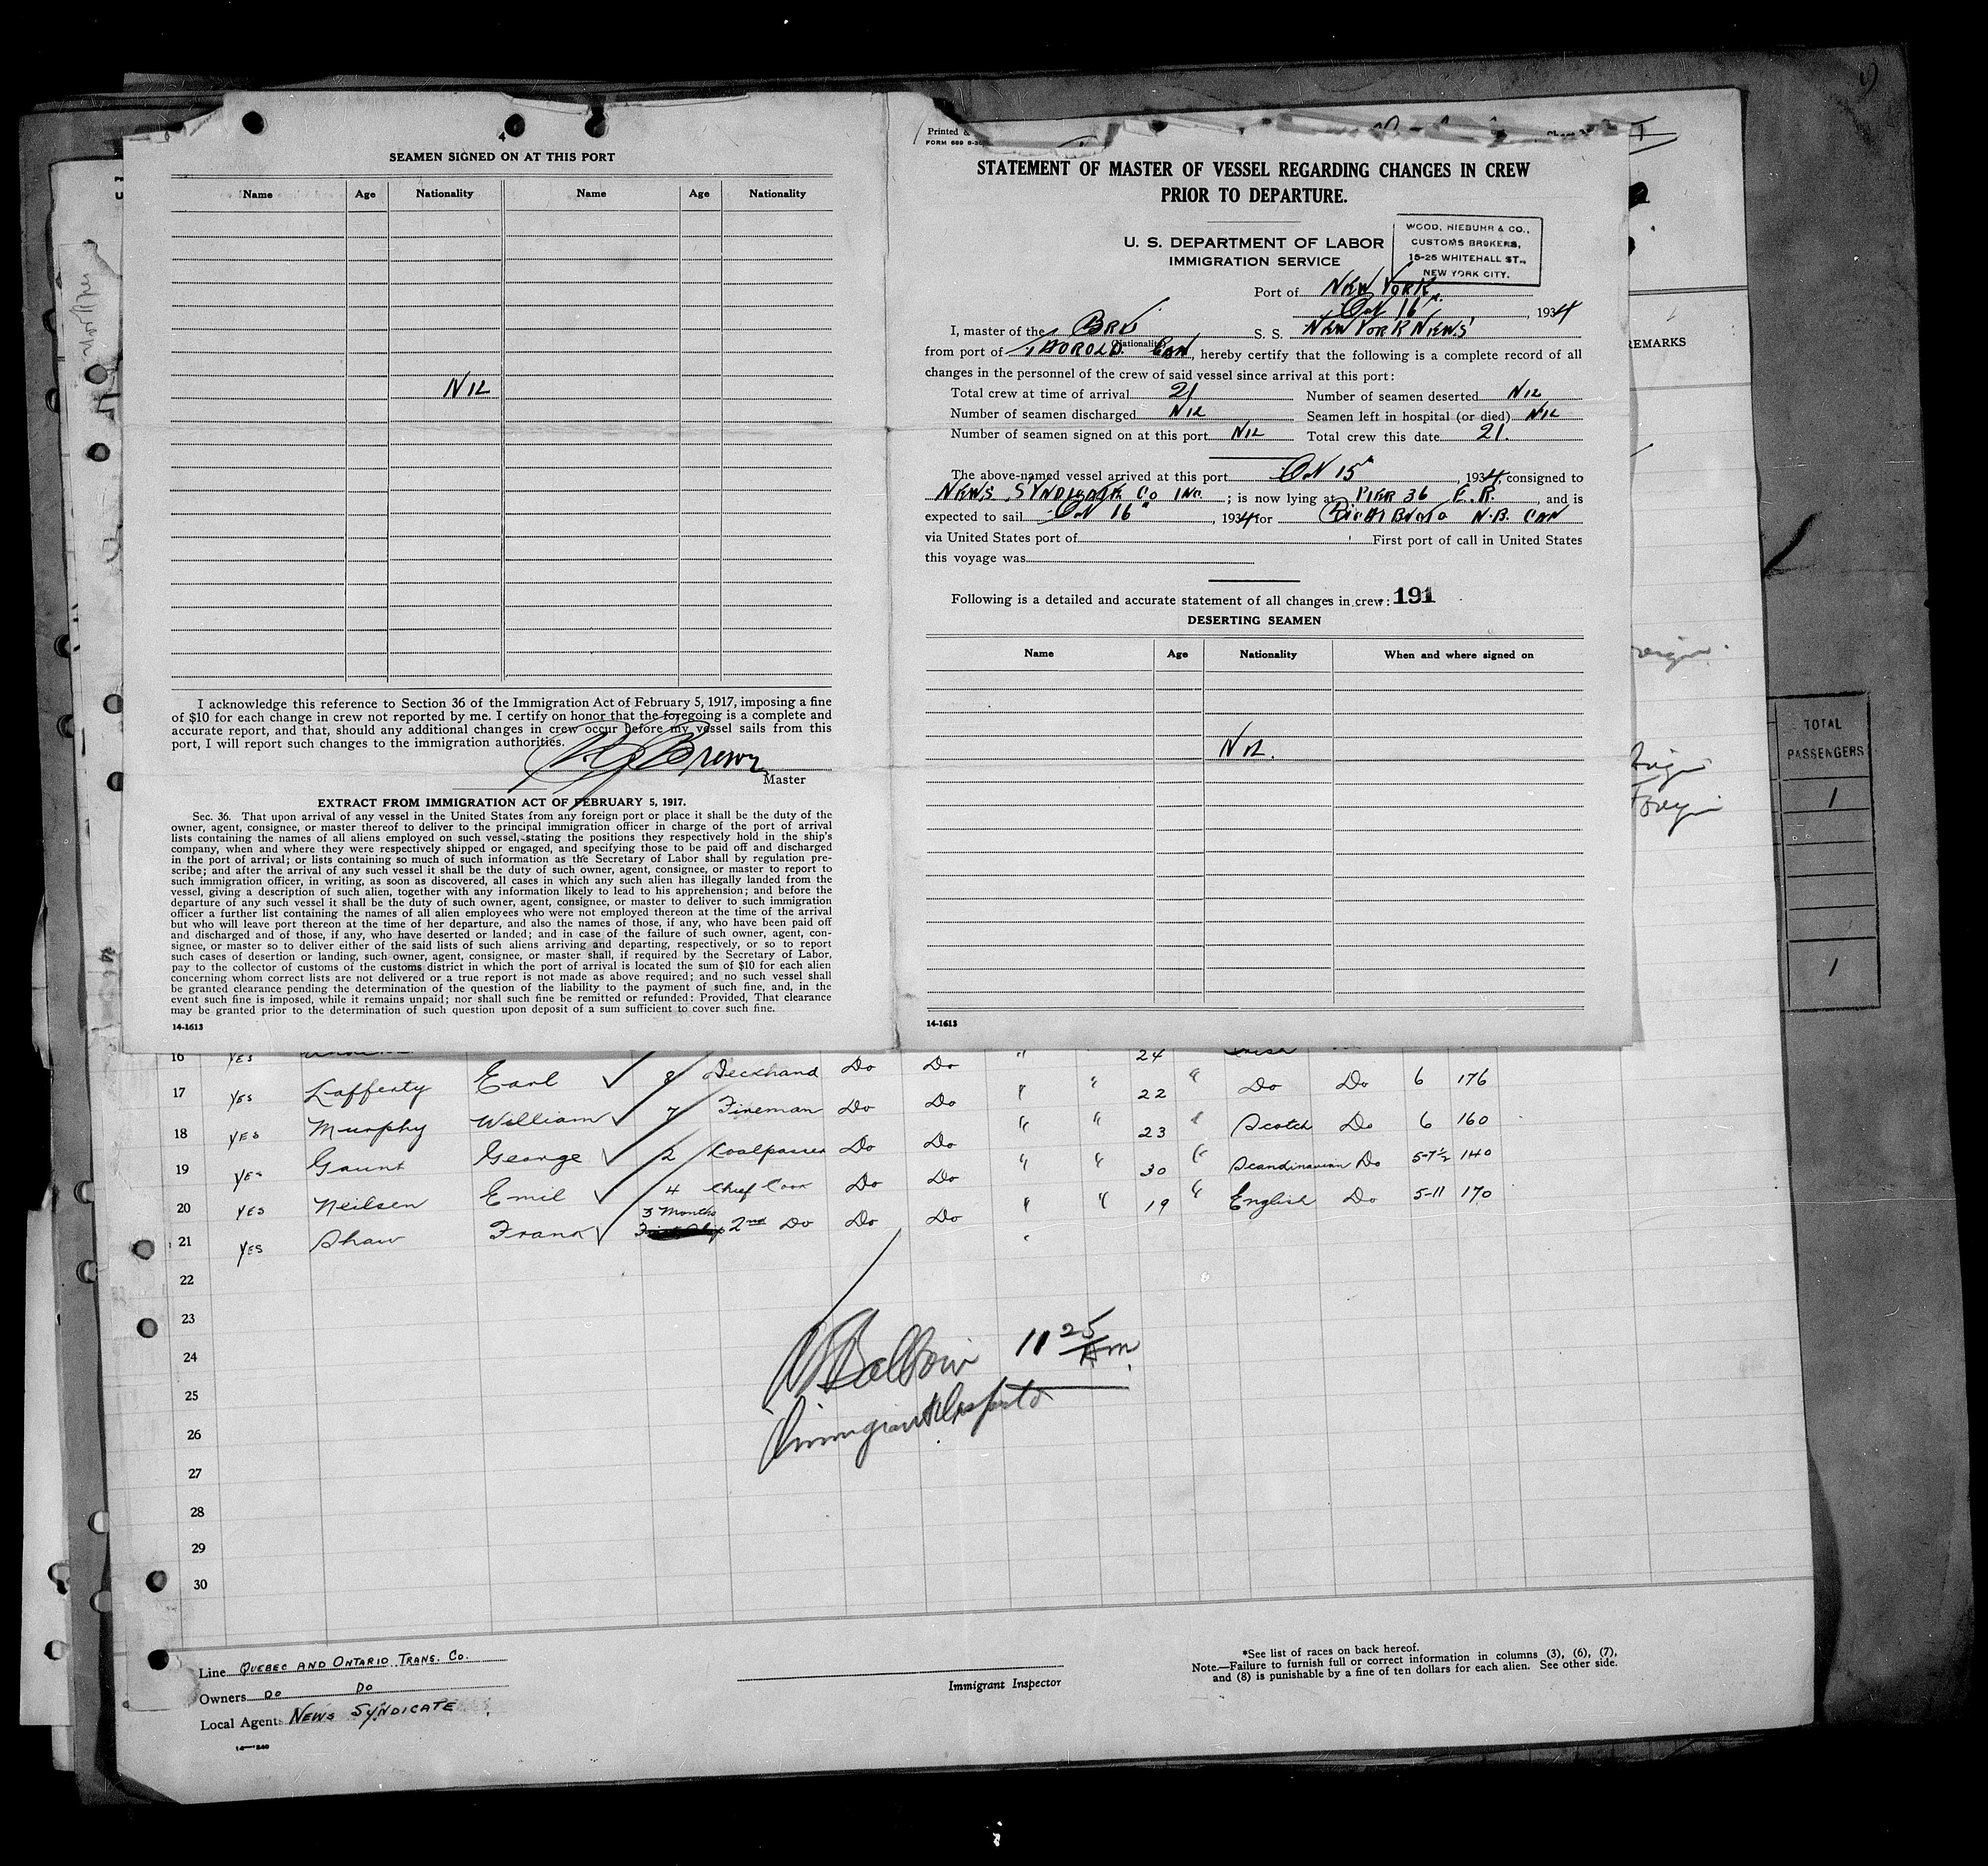 4
SEAMEN SIGNED ON AT THIS PORT
Name Age Nationality Name Age Nationality
NIL
I acknowledge this reference to Section 36 of the Immigration Act of February 5, 1917, imposing a fine
of $10 for each change in crew not reported by me. I certify on honor that the foregoing is a complete and
accurate report, and that, should any additional changes in crew occur before my vessel sails from this
port, I will report such changes to the immigration authorities.
Brown
Master
EXTRACT FROM IMMIGRATION ACT OF FEBRUARY 5, 1917.
Sec. 36. That upon arrival of any vessel in the United States from any foreign port or place it shall be the duty of the
owner, agent, consignee, or master thereof to deliver to the principal immigration officer in charge of the port of arrival
lists containing the names of all aliens employed on such vessel, stating the positions they respectively hold in the ship's
company, when and where they were respectively shipped or engaged, and specifying those to be paid off and discharged
in the port of arrival; or lists containing so much of such information as the Secretary of Labor shall by regulation pre-
scribe; and after the arrival of any such vessel it shall be the duty of such owner, agent, consignee, or master to report to
such immigration officer, in writing, as soon as discovered, all cases in which any such alien has illegally landed from the
vessel, giving a description of such alien, together with any information likely to lead to his apprehension; and before the
departure of any such vessel it shall be the duty of such owner, agent, consignee, or master to deliver to such immigration
officer a further list containing the names of all alien employees who were not employed thereon at the time of the arrival
but who will leave port thereon at the time of her departure, and also the names of those, if any, who have been paid off
and discharged and of those, if any, who have deserted or landed; and in case of the failure of such owner, agent, con-
signee, or master so to deliver either of the said lists of such aliens arriving and departing, respectively, or so to report
such cases of desertion or landing, such owner, agent, consignee, or master shall, if required by the Secretary of Labor,
pay to the collector of customs of the customs district in which the port of arrival is located the sum of $10 for each alien
concerning whom correct lists are not delivered or a true report is not made as above required; and no such vessel shall
be granted clearance pending the determination of the question of the liability to the payment of such fine, and, in the
event such fine is imposed, while it remains unpaid; nor shall such fine be remitted or refunded: Provided, That clearance
may be granted prior to the determination of such question upon deposit of a sum sufficient to cover such fine.
14-1613
Printed &
FORM 689
STATEMENT OF MASTER OF VESSEL REGARDING CHANGES IN CREW
PRIOR TO DEPARTURE.
U. S. DEPARTMENT OF LABOR
IMMIGRATION SERVICE
WOOD, NIEBUHR & CO.,
CUSTOMS BROKERS,
15-25 WHITEHALL ST.,
NEW YORK CITY.
Port of NEW YORK
16, 1934
I, master of the BRU S. S. NEW YORK NEWS
(Nationality)
from port of THOROLD. CAN, hereby certify that the following is a complete record of all
changes in the personnel of the crew of said vessel since arrival at this port:
Total crew at time of arrival 21 Number of seamen deserted NIL
Number of seamen discharged NIL Seamen left in hospital (or died) NIL
Number of seamen signed on at this port NIL Total crew this date 21.
The above-named vessel arrived at this port 15, 1934, consigned to
NEWS SYNDICATE CO INC; is now lying at PIER 36 E.R., and is
expected to sail 16, 1934 for N.B. CAN
via United States port of First port of call in United States
this voyage was
Following is a detailed and accurate statement of all changes in crew: 191
DESERTING SEAMEN
Name Age Nationality When and where signed on
NIL.
14-1613
REMARKS
TOTAL
PASSENGERS
1
1
16 YES 24
17 YES Lafferty Earl 8 Deckhand Do Do " " 22 " Do Do 6 176
18 YES Murphy William 7 Fireman Do Do " " 23 " Scotch Do 6 160
19 YES Gaunt George 2 Coalpasser Do Do " " 30 " Scandinavian Do 5-7½ 140
20 YES Neilsen Emil 4 Chief Cook Do Do " " 19 " English Do 5-11 170
21 YES Shaw Frank 3 Months 2nd Do Do Do "
22
23
24
25
26
27
28
29
30
11 25 AM
Line QUEBEC AND ONTARIO TRANS. CO.
Owners DO DO
Local Agents NEWS SYNDICATE
Immigrant Inspector
*See list of races on back hereof.
Note.—Failure to furnish full or correct information in columns (3), (6), (7),
and (8) is punishable by a fine of ten dollars for each alien. See other side.